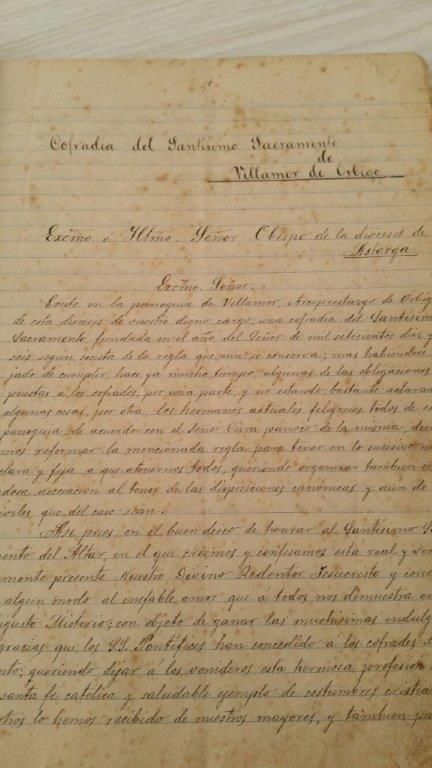 Cofradía del Santísimo Sacramento
de
Villamor de Orbigo
Excmo. e Iltmo. Señor Obispo de la diócesis de
Astorga
Excmo. Señor:
Existe en la parroquia de Villamor, Arciprestazgo de Orbig
de esta diócesis de vuestro digno cargo, una cofradía del Santísim
Sacramento, fundada en el año del Señor de mil setecientos diez y
seis, según consta de la regla que aun se conserva; mas habiéndose
jado de cumplir, hace ya mucho tiempo, algunas de las obligaciones
puestas a los cofrades, por una parte, y no estando bastante aclarad
algunas cosas, por otra, los hermanos actuales feligreses todos de es
parroquia, de acuerdo con el Señor Cura párroco de la misma, dese
mos reformar la mencionada regla para tener en lo sucesivo no
clara y fija a que atenernos todos, queriendo organizar también es
adosa asociación al tenor de las disposiciones canónicas y aún de
civiles que del caso sean.
Así pues, en el buen deseo de honrar al Santísimo S
mento del Altar, en el que creemos y confesamos está real y ver
amente presente Nuestro Divino Redentor Jesucristo y corre
algún modo al inefable amor que a todos nos demuestra en
ugusto Misterio; con objeto de ganar las muchísimas indulg
gracias que los SS. Pontífices han concedido á los cofrades d
nto; queriendo dejar á los venideros esta hermosa profesión
santa fe católica y saludable ejemplo de costumbres cristia
otros lo hemos recibido de nuestros mayores, y también pa